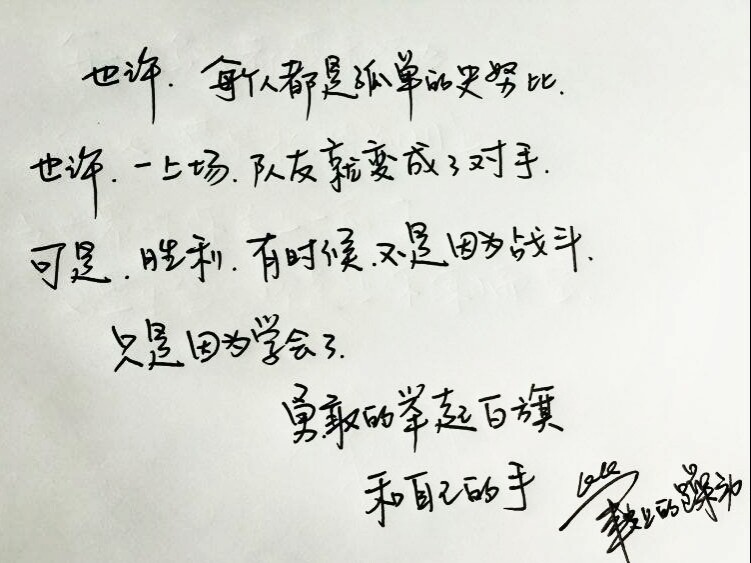 也许.每个人都是孤单的史努比.
也许.一上场.队友就变成了对手.
可是.胜利.有时候.不是因为战斗.
只是因为学会了.
勇敢的举起白旗
和自己的手
的躁动